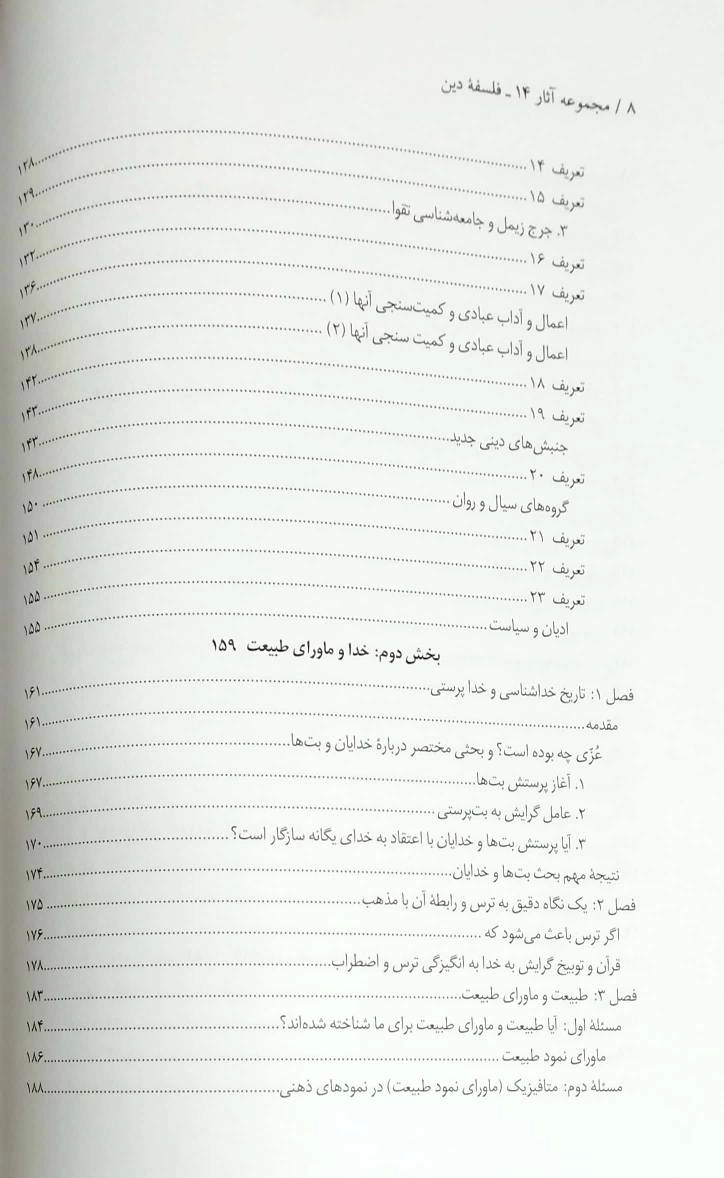 ۸ / مجموعه آثار ۱۴ - فلسفهٔ دین
تعریف ۱۴ ........ ۱۲۸
تعریف ۱۵ ........ ۱۲۹
۳. جرج زیمل و جامعه‌شناسی تقوا ........ ۱۳۰
تعریف ۱۶ ........ ۱۳۲
تعریف ۱۷ ........ ۱۳۶
اعمال و آداب عبادی و کمیت‌سنجی آنها (۱) ........ ۱۳۷
اعمال و آداب عبادی و کمیت سنجی آنها (۲) ........ ۱۳۸
تعریف ۱۸ ........ ۱۴۲
تعریف ۱۹ ........ ۱۴۳
جنبش‌های دینی جدید ........ ۱۴۳
تعریف ۲۰ ........ ۱۴۸
گروه‌های سیال و روان ........ ۱۵۰
تعریف ۲۱ ........ ۱۵۱
تعریف ۲۲ ........ ۱۵۴
تعریف ۲۳ ........ ۱۵۵
ادیان و سیاست ........ ۱۵۵
بخش دوم: خدا و ماورای طبیعت ۱۵۹
فصل ۱: تاریخ خداشناسی و خدا پرستی ........ ۱۶۱
مقدمه ........ ۱۶۱
عُزّی چه بوده است؟ و بحثی مختصر دربارهٔ خدایان و بت‌ها ........ ۱۶۷
۱. آغاز پرستش بت‌ها ........ ۱۶۷
۲. عامل گرایش به بت‌پرستی ........ ۱۶۹
۳. آیا پرستش بت‌ها و خدایان با اعتقاد به خدای یگانه سازگار است؟ ........ ۱۷۰
نتیجهٔ مهم بحث بت‌ها و خدایان ........ ۱۷۴
فصل ۲: یک نگاه دقیق به ترس و رابطهٔ آن با مذهب ........ ۱۷۵
اگر ترس باعث می‌شود که ........ ۱۷۶
قرآن و توبیخ گرایش به خدا به انگیزگی ترس و اضطراب ........ ۱۷۸
فصل ۳: طبیعت و ماورای طبیعت ........ ۱۸۳
مسئلهٔ اول: آیا طبیعت و ماورای طبیعت برای ما شناخته شده‌اند؟ ........ ۱۸۴
ماورای نمود طبیعت ........ ۱۸۶
مسئلهٔ دوم: متافیزیک (ماورای نمود طبیعت) در نمودهای ذهنی ........ ۱۸۸